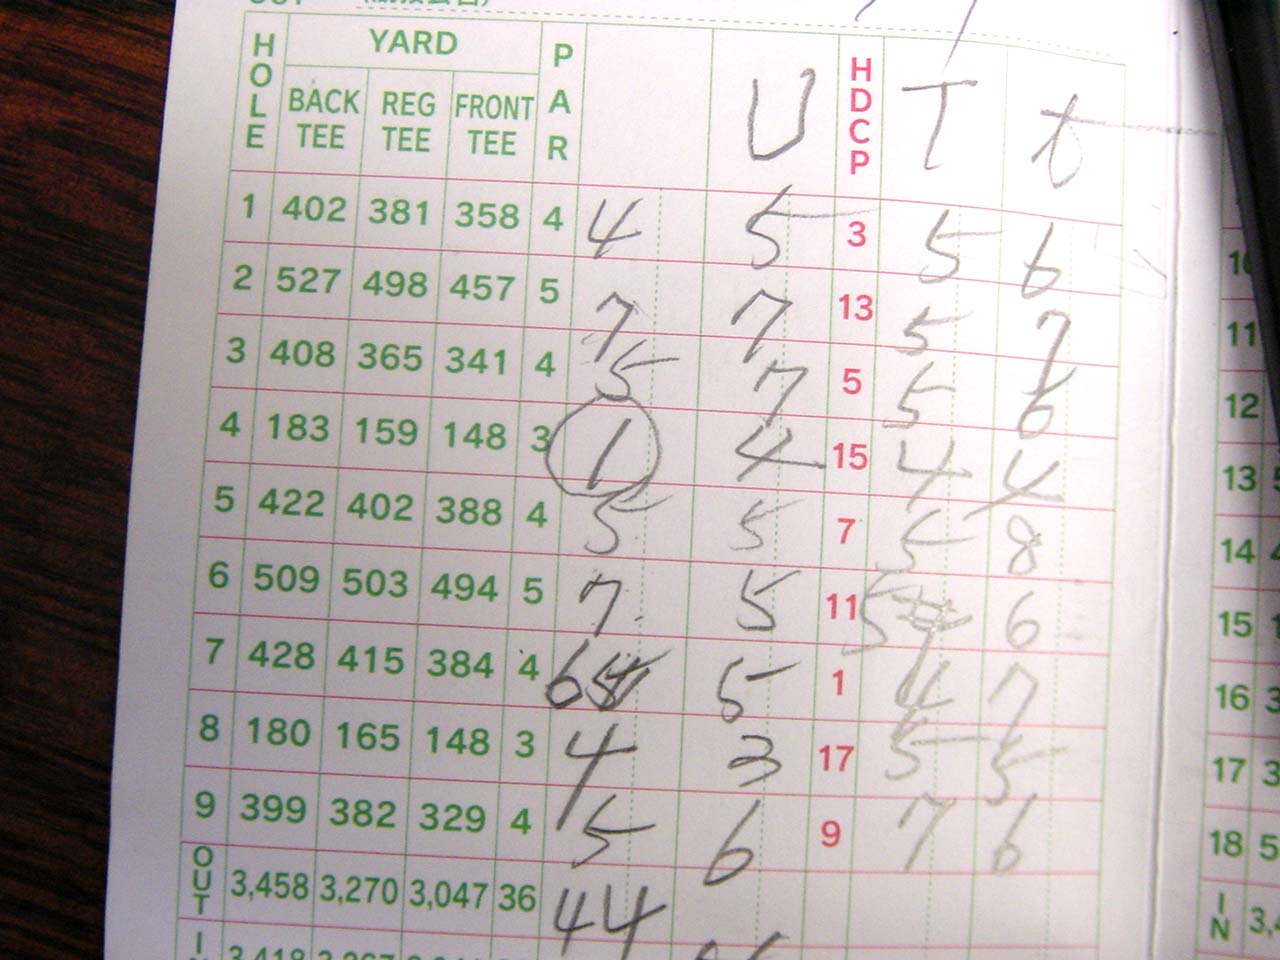 HOLE YARD PAR U HDCP T t
BACK TEE REG TEE FRONT TEE
1 402 381 358 4 4 5 3 5 6
2 527 498 457 5 7 7 13 5 7
3 408 365 341 4 5 7 5 5 6
4 183 159 148 3 1 4 15 4 4
5 422 402 388 4 5 5 7 5 8
6 509 503 494 5 7 5 11 5 6
7 428 415 384 4 6 5 1 4 7
8 180 165 148 3 4 3 17 5 5
9 399 382 329 4 5 6 9 7 6
OUT 3,458 3,270 3,047 36 44
11
12
13
14
15
16
17
18
IN